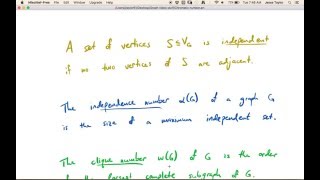 A set of vertices S⊆V_G is independent
if no two vertices of S are adjacent.
The independence number α(G) of a graph G
is the size of a maximum independent set.
The clique number ω(G) of G is the order
of the largest complete subgraph of G.